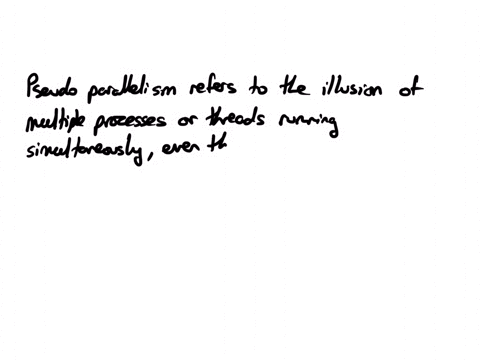 Pseudo parallelism refers to the illusion of
multiple processes or threads running
simultaneously, even th